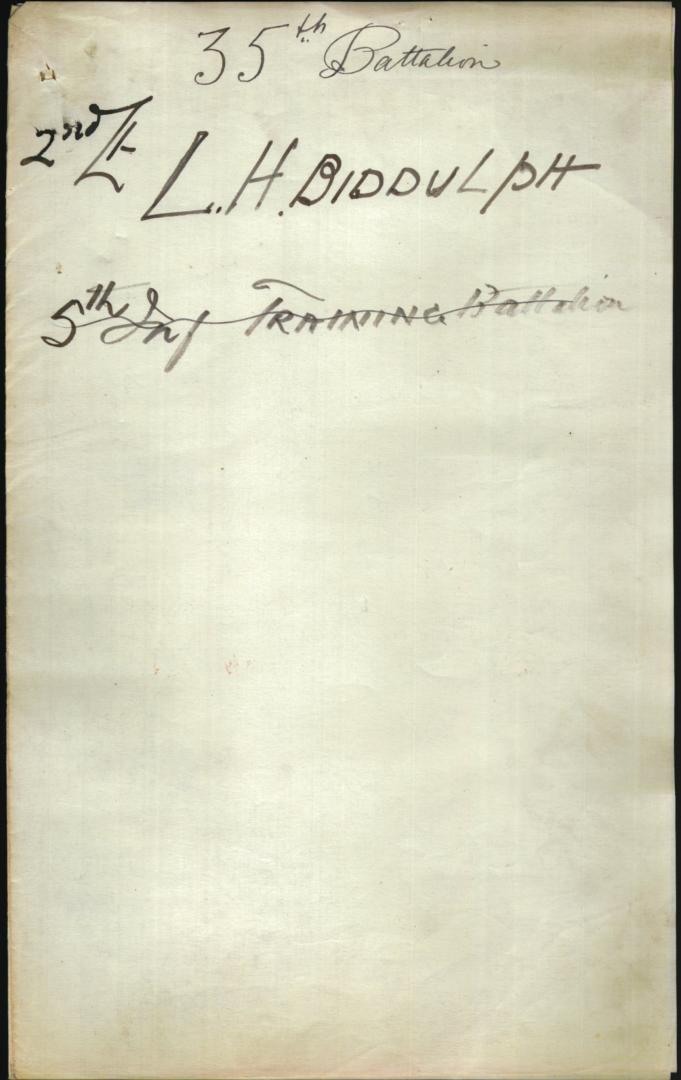 35th Battalion
2nd Lt L. H. BIDDULPH
5th Inf TRAINING Battalion